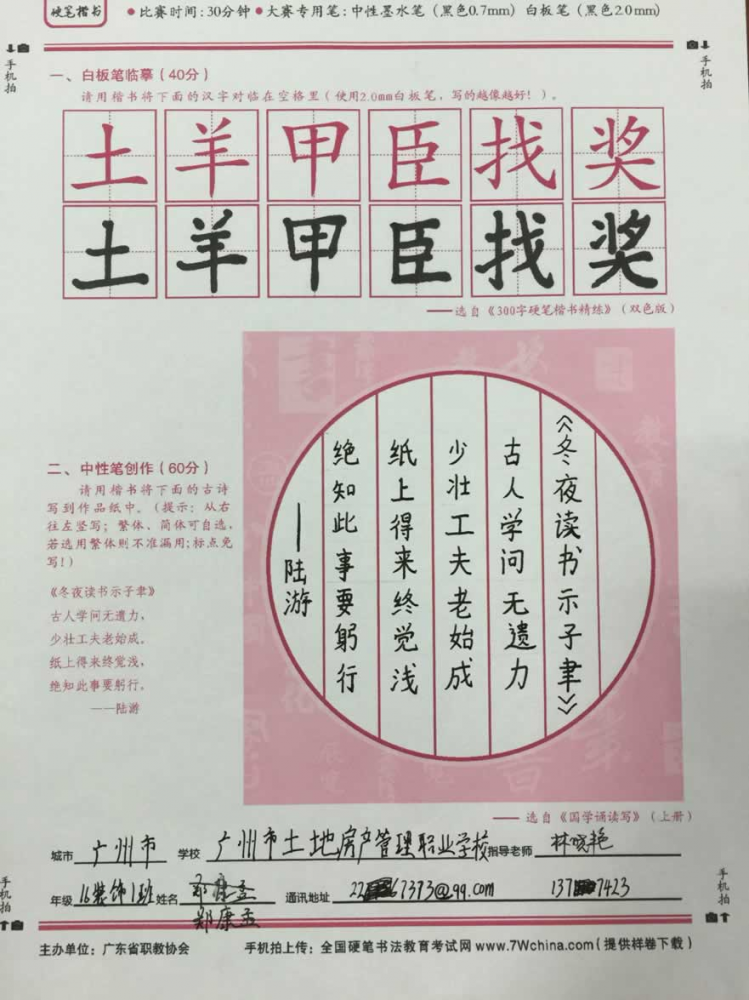 硬笔楷书
●比赛时间:30分钟 ●大赛专用笔:中性墨水笔(黑色0.7mm) 白板笔(黑色2.0mm)
手机拍
手机拍
一、白板笔临摹(40分)
请用楷书将下面的汉字对临在空格里(使用2.0mm白板笔,写的越像越好!)。
土羊甲臣找奖
土羊甲臣找奖
——选自《300字硬笔楷书精练》(双色版)
二、中性笔创作(60分)
请用楷书将下面的古诗
写到作品纸中。(提示:从右
往左竖写;繁体、简体可自选,
若选用繁体则不准漏用;标点免
写!)
《冬夜读书示子聿》
古人学问无遗力,
少壮工夫老始成。
纸上得来终觉浅,
绝知此事要躬行。
——陆游
《冬夜读书示子聿》
古人学问无遗力
少壮工夫老始成
纸上得来终觉浅
绝知此事要躬行
——陆游
——选自《国学诵读写》(上册)
城市 广州市 学校 广州市土地房产管理职业学校 指导老师 林晓艳
年级 16装饰1班 姓名 郑康孟 通讯地址 22 67373@qq.com 137 7423
手机拍
手机拍
主办单位:广东省职教协会 手机拍上传:全国硬笔书法教育考试网 www.7Wchina.com(提供样卷下载)